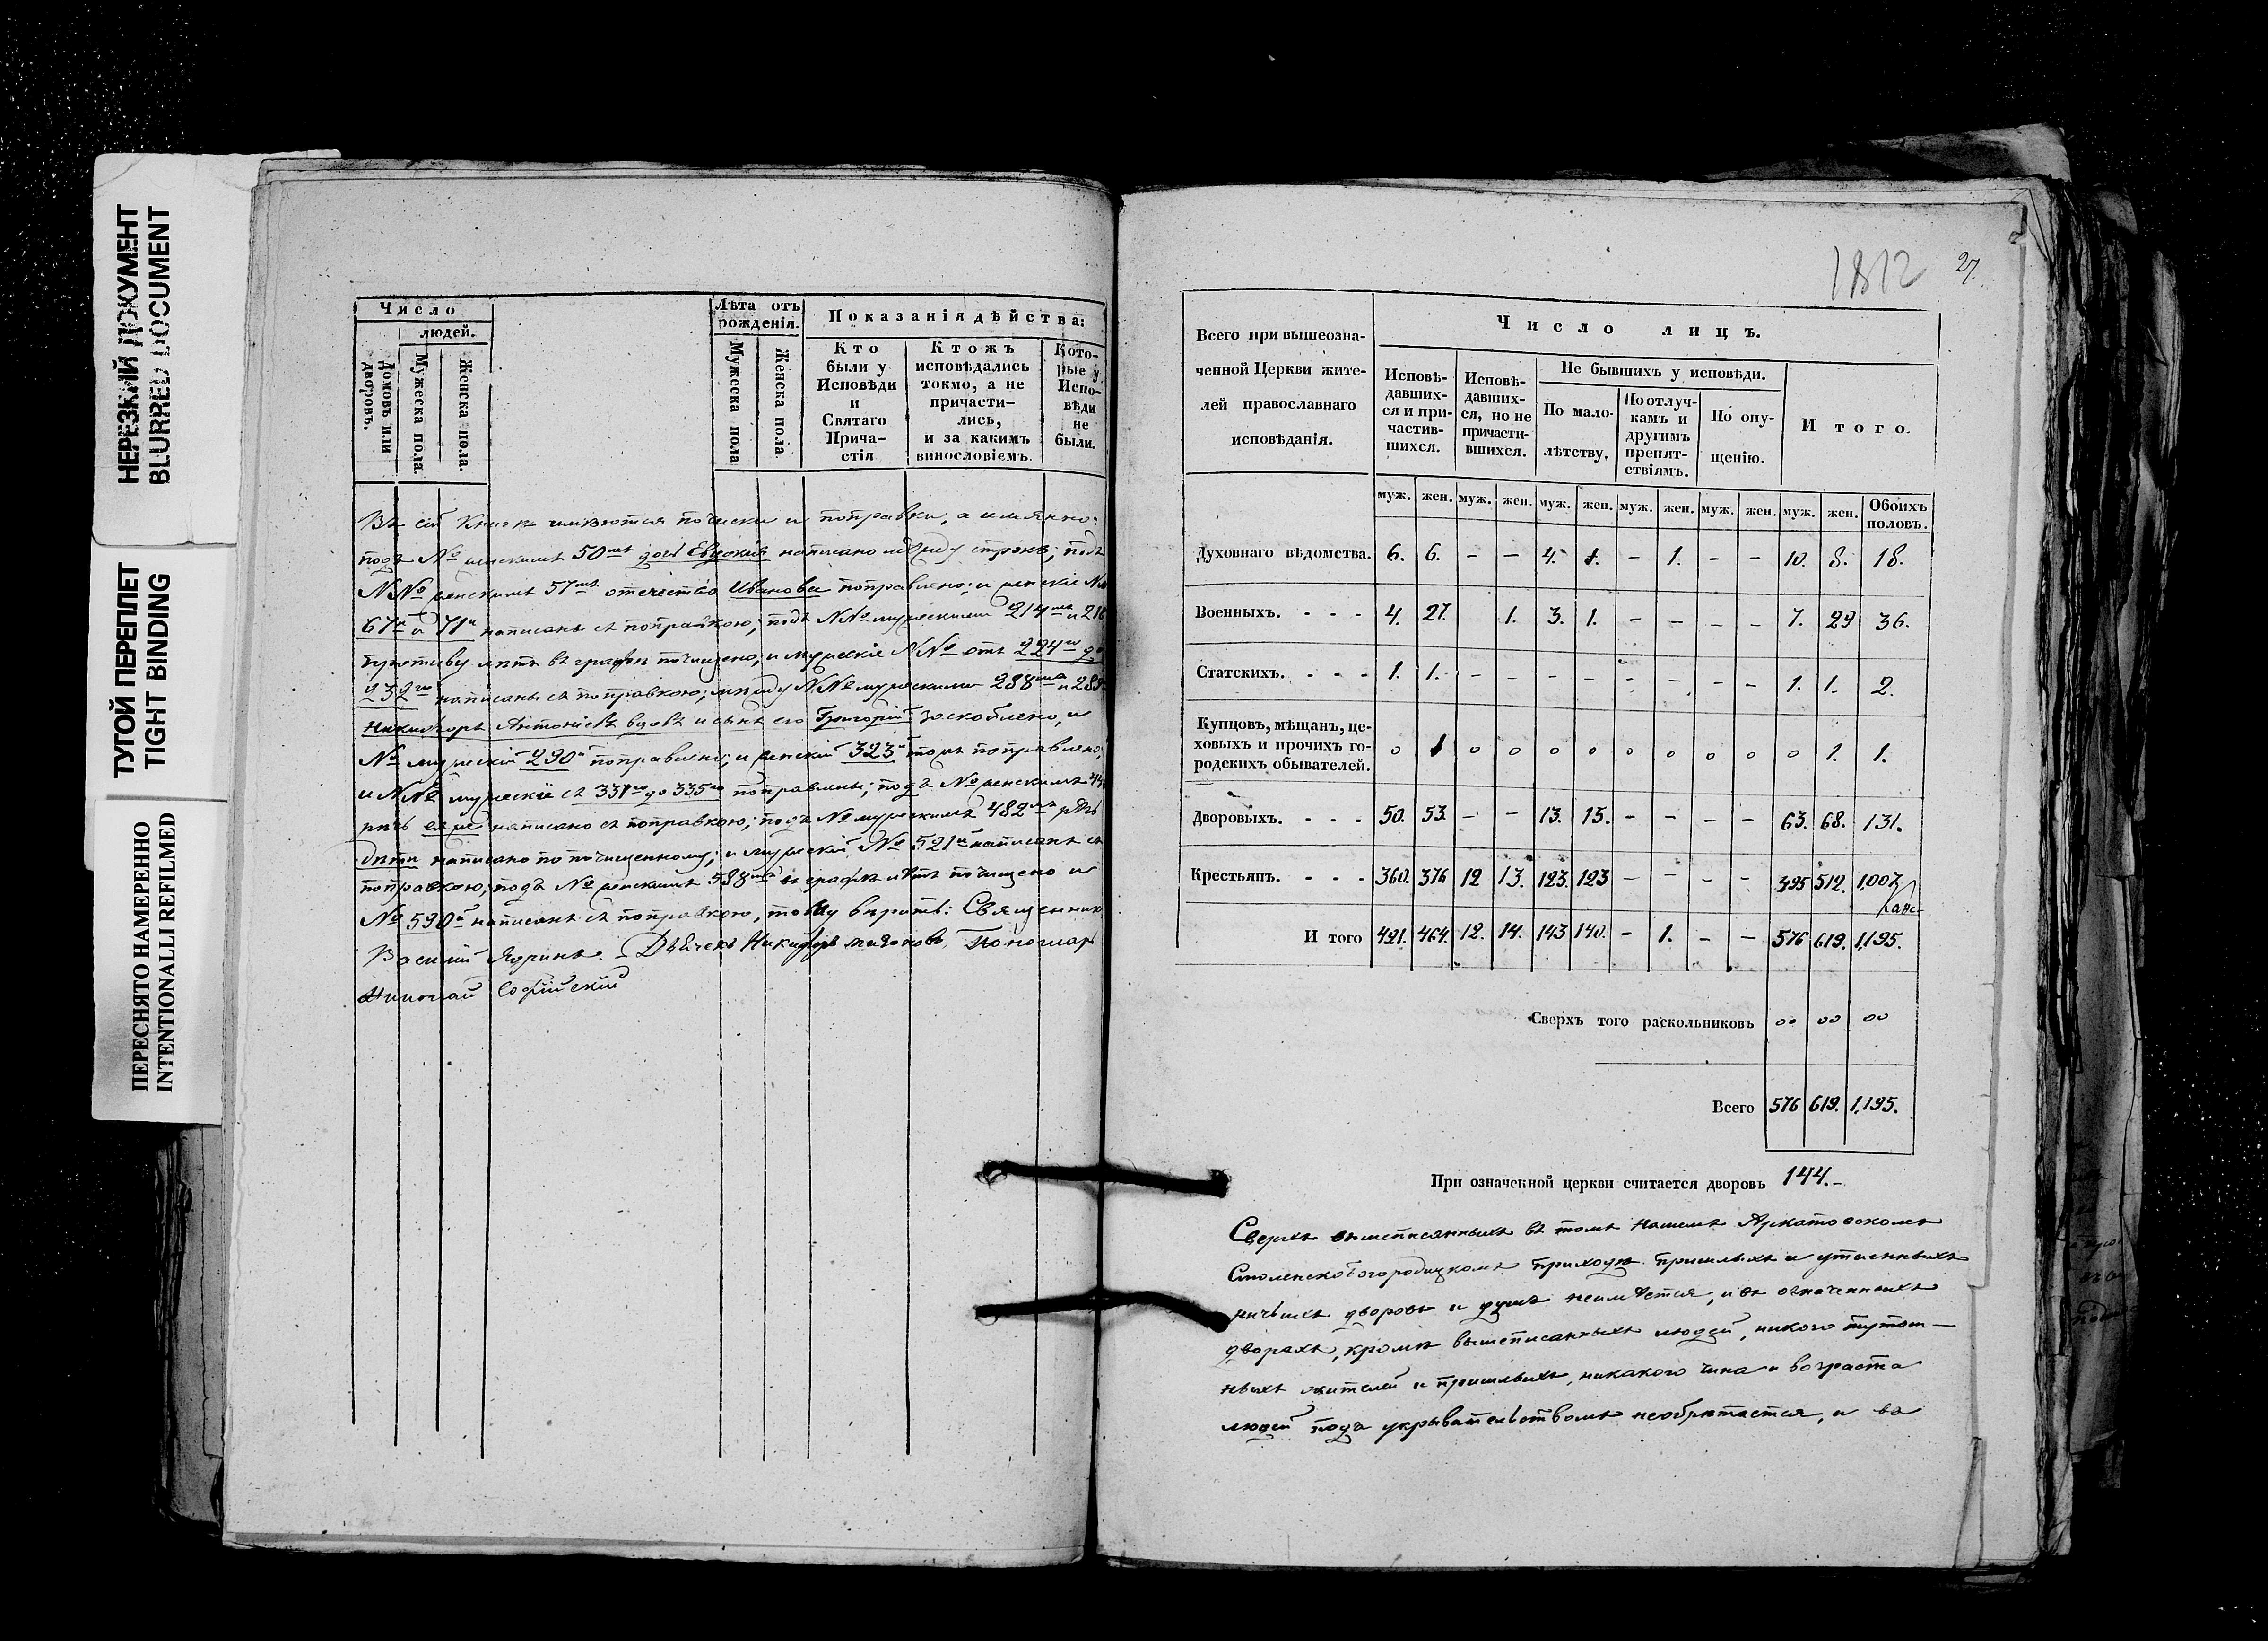 НЕРЕЗКИЙ ДОКУМЕНТ
BLURRED DOCUMENT
ТУГОЙ ПЕРЕПЛЕТ
TIGHT BINDING
ПЕРЕСНЯТО НАМЕРЕННО
INTENTIONALLI REFILMED
Число
людей.
Домовъ или дворовъ.
Мужеска пола.
Женска пола.
Лѣта отъ рожденія.
Мужеска пола
Женска пола.
Показанія дѣйства:
Кто были у Исповѣди и Святаго Прича-стія
Ктожъ исповѣдались токмо, а не причасти-лись, и за какимъ винословіемъ.
Кото-рые у Испо-вѣди не были.
Въ сей Книгѣ имѣются почистки и поправки, а имянно:
подъ № женскимъ 50мъ дочь Евдокія написано между строкъ; подъ
№№ женскимъ 57мъ отечество Иванова поправлено; и женскіе №№
67й и 71й написаны съ поправкою; подъ №№ мужескими 214мъ и 216
противу лѣтъ въ графѣ почищено; и мужескіе №№ отъ 224го до
232го написаны съ поправкою; между №№ мужескими 288мъ и 289
Никифоръ Антоніевъ вдовъ и сынъ его Григорій заскоблено, и
№ мужескій 290й поправленъ; и женскій 323й тожъ поправлено;
и №№ мужескіе съ 331го до 335го поправлены; подъ № женскимъ
рѣчь ея же написано съ поправкою; подъ № мужескимъ 482мъ рѣчь
дѣти написано по почищенному; и мужескій № 521й написанъ съ
поправкою; подъ № женскимъ 588мъ въ графѣ лѣтъ почищено и
№ 590й написанъ съ поправкою, тому вѣрить: Священникъ
Василій Ядринъ. Дьячекъ Никифоръ Пономарь
Николай Софійскій
1812
27.
Всего при вышеозна-
ченной Церкви жите-
лей православнаго
исповѣданія.
Число лицъ.
Исповѣ-давших-ся и при-частив-шихся.
Исповѣ-давших-ся, но не причасти-вшихся.
Не бывшихъ у исповѣди.
По мало-лѣтству.
По отлуч-камъ и другимъ препят-ствіямъ.
По опу-щенію.
Итого.
муж. жен. муж. жен. муж. жен. муж. жен. муж. жен. муж. жен. Обоихъ половъ.
Духовнаго вѣдомства. 6. 6. - - 4. 1. - 1. - - 10. 8. 18.
Военныхъ. - - - 4. 27. 1. 3. 1. - - - - 7. 29 36.
Статскихъ. - - - 1. 1. - - - - - - - - 1. 1. 2.
Купцовъ, мѣщанъ, це-
ховыхъ и прочихъ го-
родскихъ обывателей. 0 1 0 0 0 0 0 0 0 0 0 1. 1.
Дворовыхъ. - - - 50. 53. - - 13. 15. - - - - 63. 68. 131.
Крестьянъ. - - - 360. 376 12 13. 123. 123 - - - - 495 512. 1,007
И того 421. 464. 12. 14. 143 140. - 1. - - 576 619. 1,195.
Сверхъ того раскольниковъ 00 00 00
Всего 576 619. 1,195.
При означенной церкви считается дворовъ 144.-
Сверхъ вышеписанныхъ въ томъ нашемъ Аркатовскомъ
Смоленскобогородицкомъ приходѣ пришлыхъ и утаенныхъ
ничьихъ дворовъ и душъ неимѣется, и въ означенныхъ
дворахъ, кромѣ вышеписанныхъ людей, никого тутош-
ныхъ жителей и пришлыхъ, никакого чина и возраста
людей подъ укрывательствомъ необрѣтается, и въ